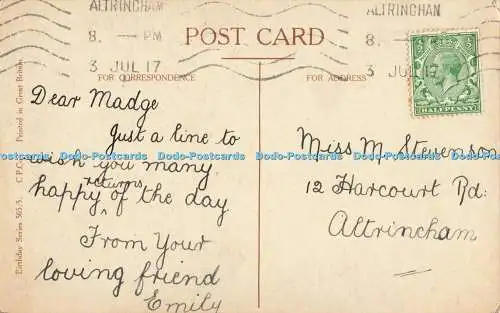 ALTRINCHAM
8. PM
3 JUL 17
ALTRINCHAM
8.
3 JUL 17
POST CARD
FOR CORRESPONDENCE
FOR ADDRESS
HALFPENNY
Birthday Series 565/5. C.P.C. Printed in Great Britain
Dear Madge
Just a line to
wish you many
happy returns of the day
From Your
loving friend
Emily
Miss M. Stevenson
12 Harcourt Rd:
Altrincham
Dodo-Postcards Dodo-Postcards Dodo-Postcards Dodo-Postcards Dodo-Postcards